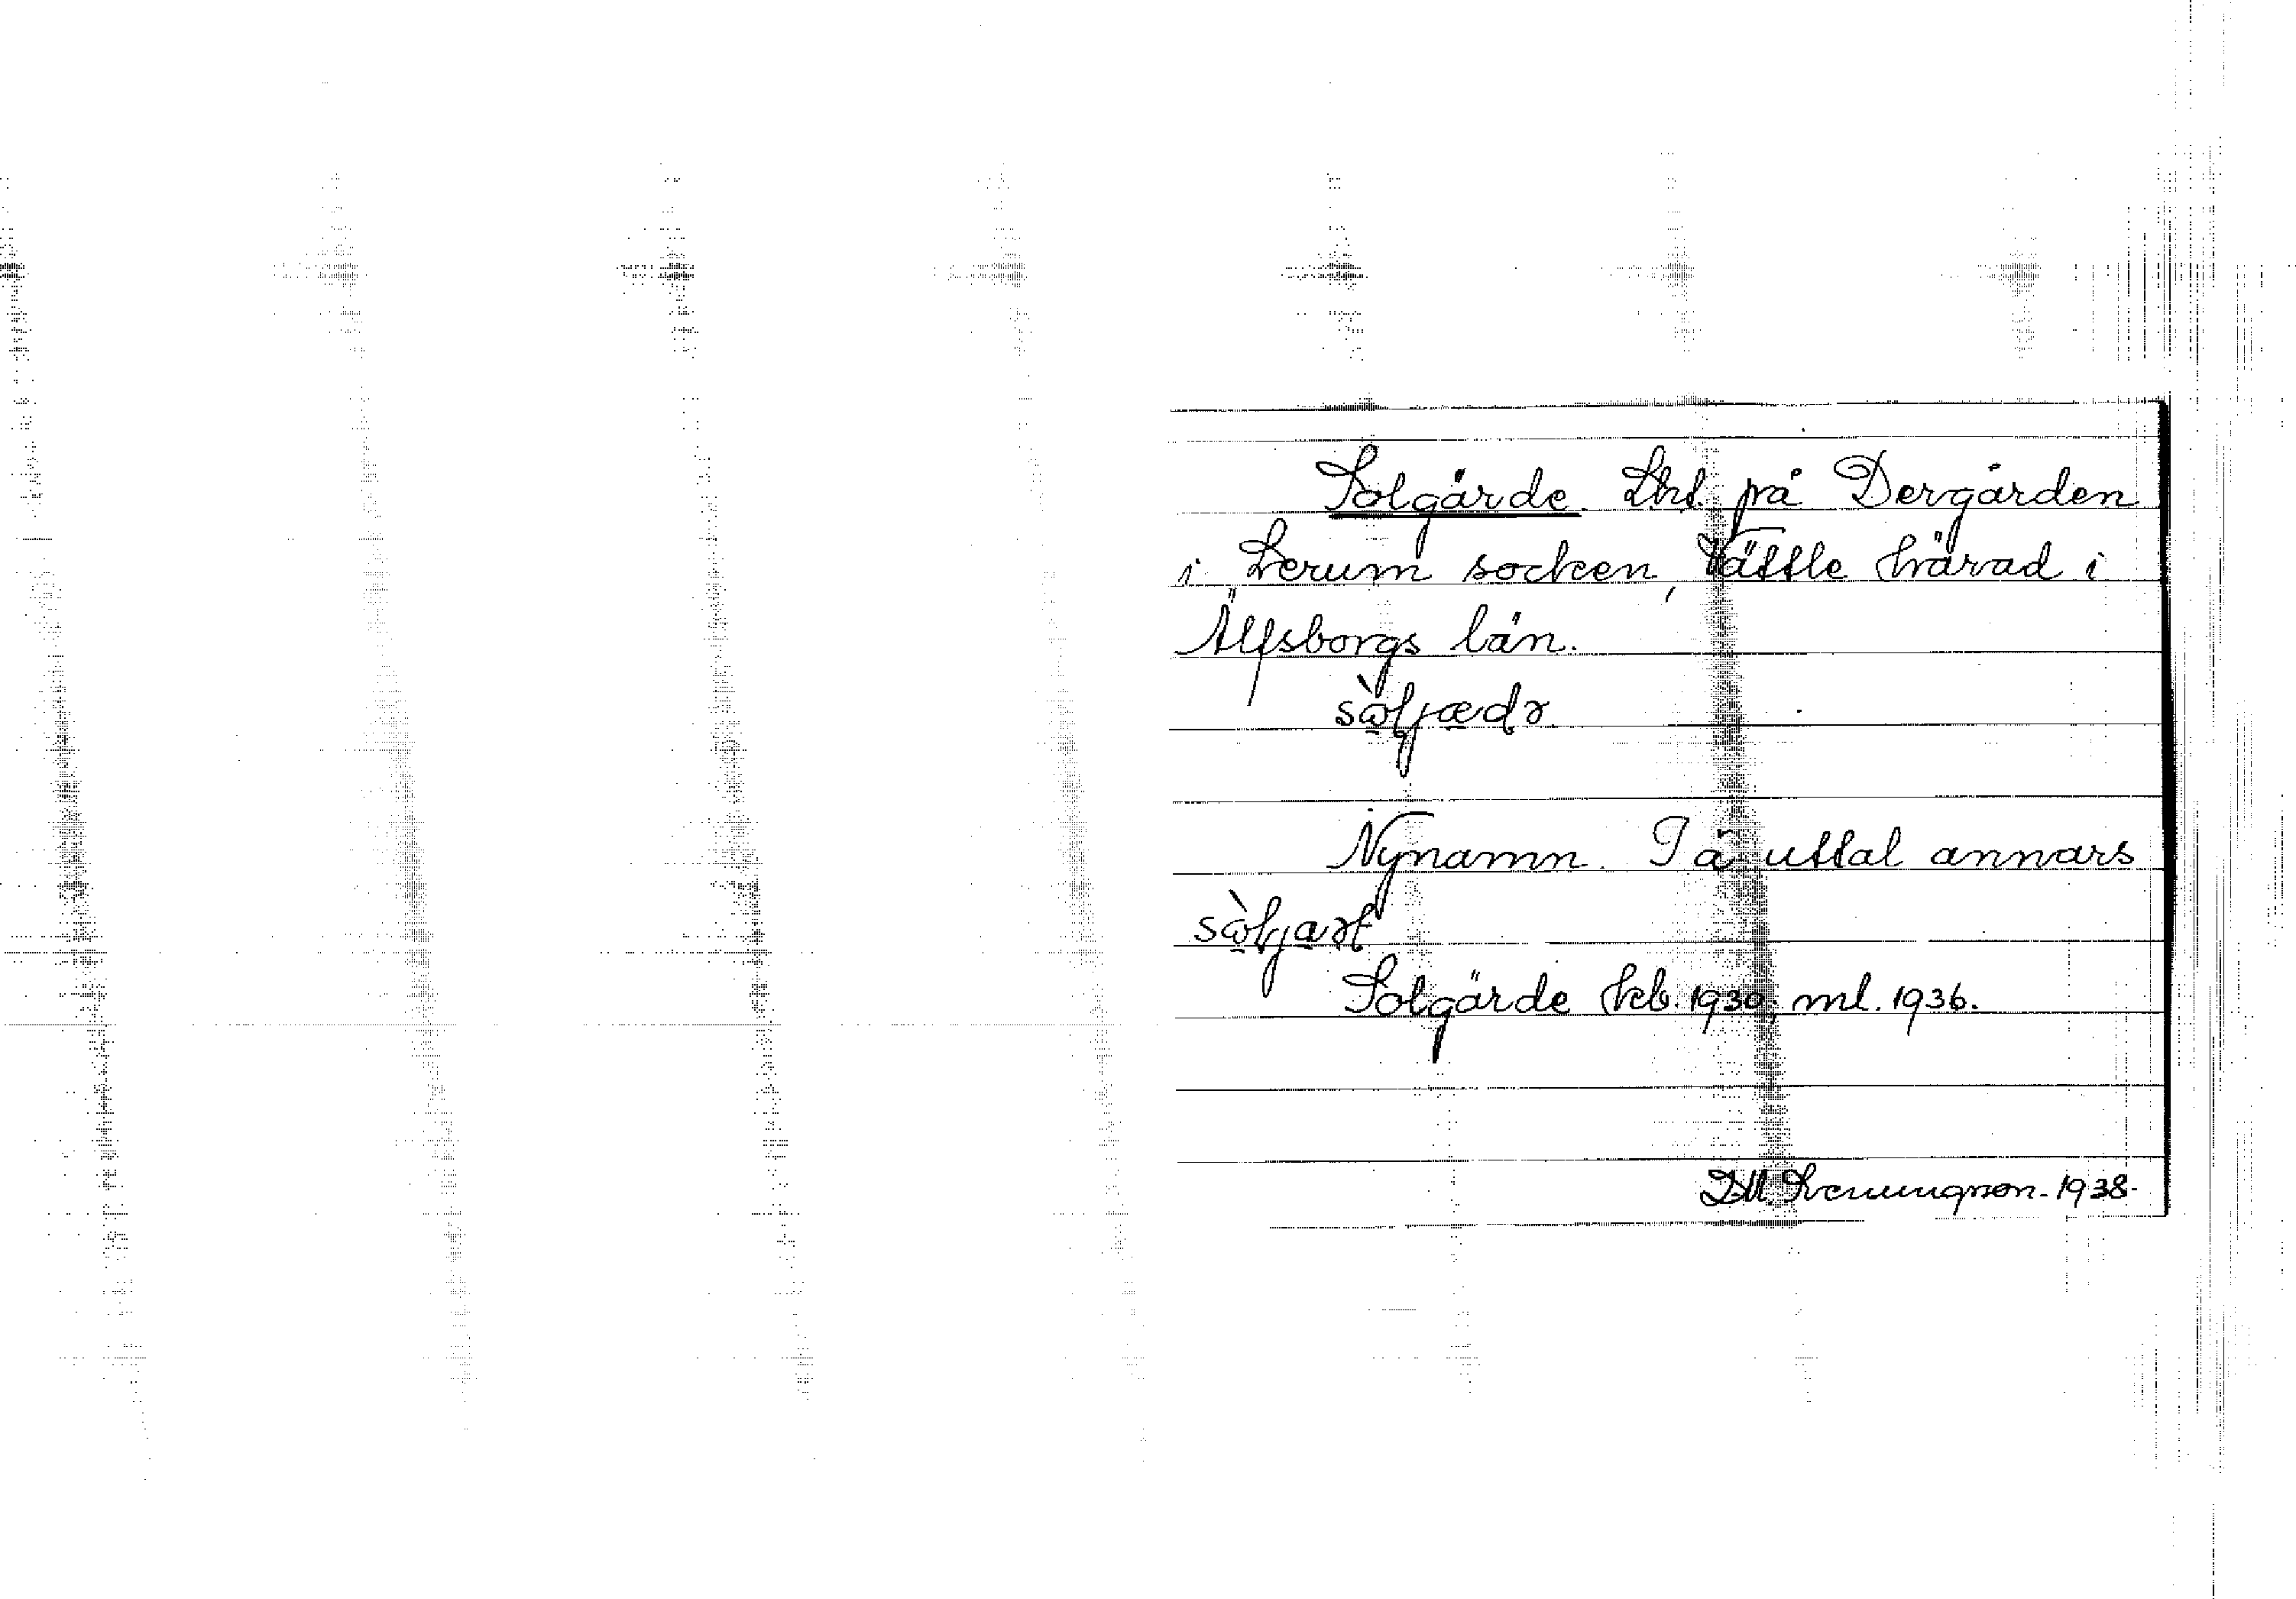 Solgärde. Lht. på Dergården
i Lerum socken, Vättle härad i
Älfsborgs län.
Nynamn. I ä. uttal annars
Solgärde kb. 1930; ml. 1936.
D.M. Svenningson. 1938.